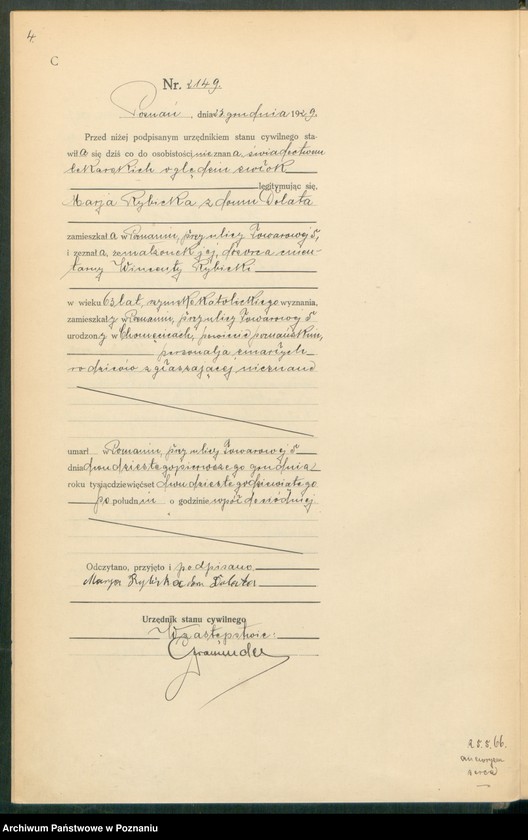 4.
C
Nr. 2149.
Poznań, dnia 23 grudnia 1929.
Przed niżej podpisanym urzędnikiem stanu cywilnego sta-
wiła się dziś co do osobistości, nieznana, świadectwem
lekarskich oględzin zwłok
legitymując się,
Marja Rybicka z domu Dolata
zamieszkała w Poznaniu, przy ulicy Towarowej 5,
i zeznała, że małżonek jej, dozorca cmen-
tarny Wincenty Rybicki
w wieku 63 lat, rzymsko katolickiego wyznania,
zamieszkały w Poznaniu, przy ulicy Towarowej 5
urodzony w Chomęcicach, powiecie poznańskim,
personalja zmarłych
rodziców zgłaszającej nieznane
umarł w Poznaniu, przy ulicy Towarowej 5
dnia dwudziestego pierwszego grudnia
roku tysiącdziewięćset dwudziestego dziewiątego
po południu o godzinie wpół do siódmej
Odczytano, przyjęto i podpisano
Marja Rybicka dom Dolata
Urzędnik stanu cywilnego
W zastępstwie:
25.5.66.
aneuryzm
serca
Archiwum Państwowe w Poznaniu